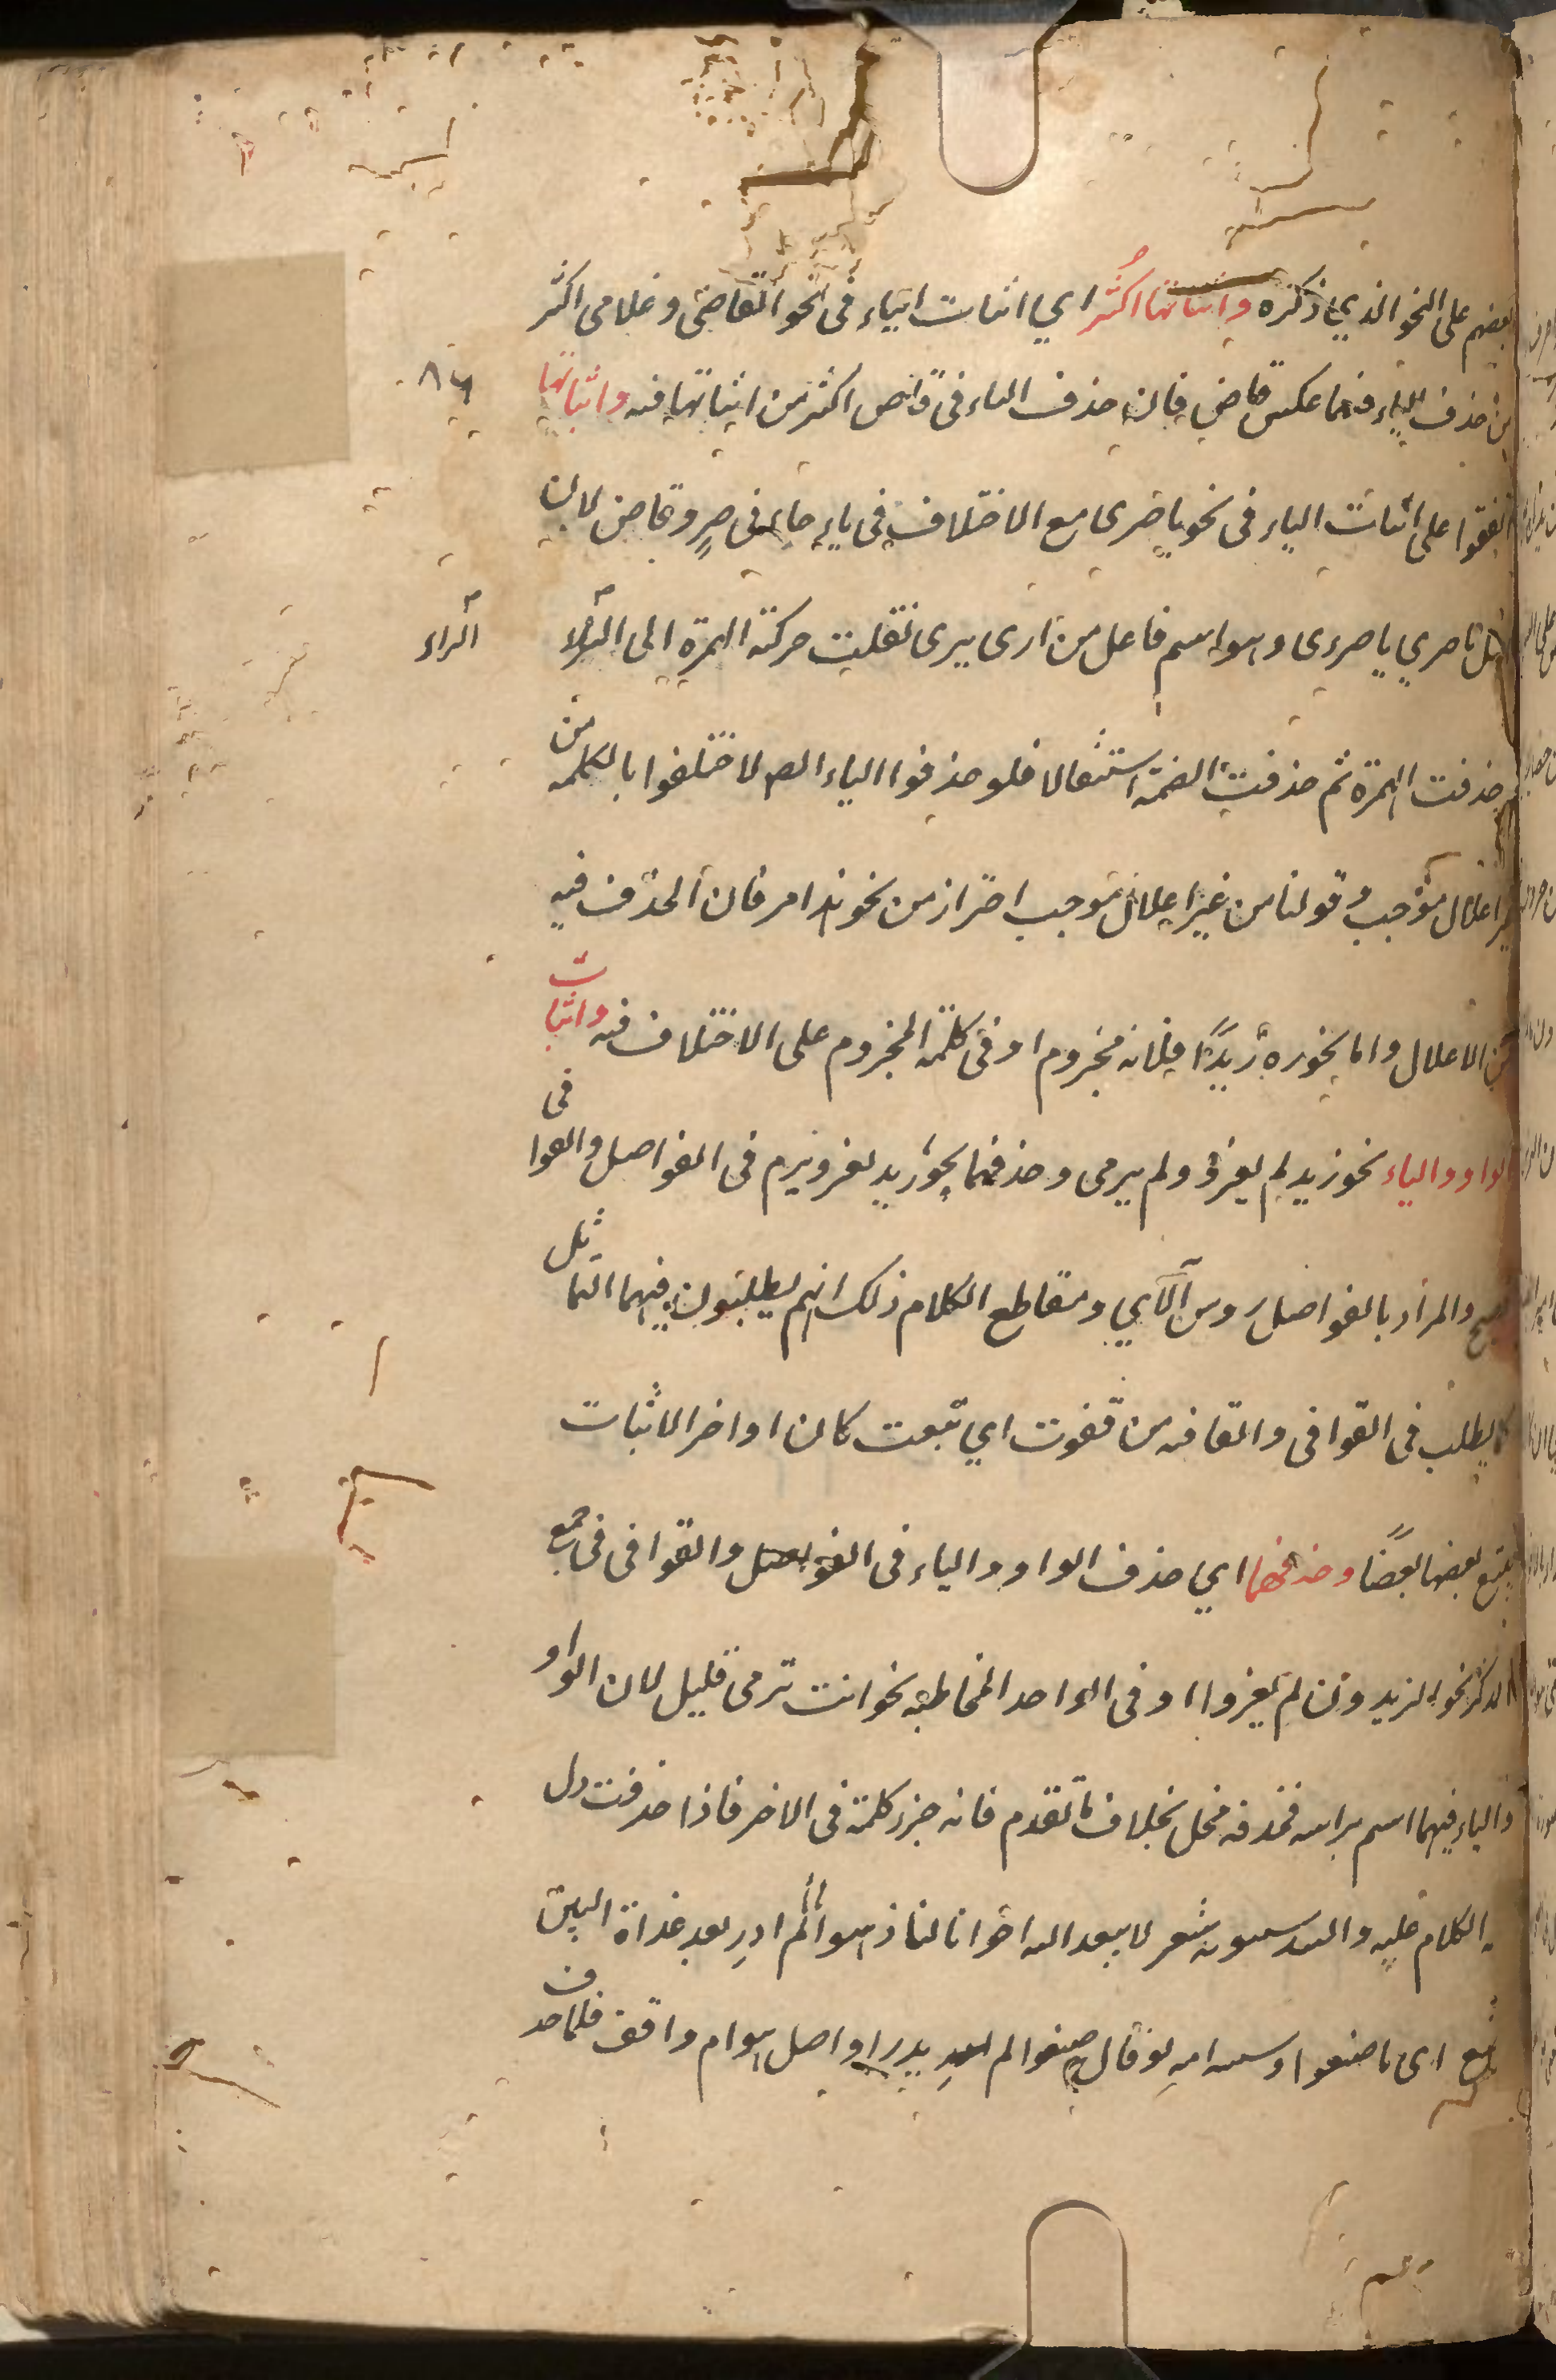 بعضهم على النحو الذي ذكره واثباتها اكثر اي اثبات الياء في نحو القاضي وغلامي اكثر
من حذف الياء فيهما عكس قاض فان حذف الياء في قاض اكثر من اثباتها فيه واثباتها
٨٦
اتفقوا على اثبات الياء في نحو يا مري مع الاختلاف في ياء جاءني مرٍ وقاض لان
اصل يا مري يا مرءى وهو اسم فاعل من ارى يرى نقلت حركة الهمزة الى الراء
الراء
وحذفت الهمزة ثم حذفت الضمة استثقالا فلو حذفوا الياء لاختلفوا بالكلمة من
غير اعلال موجب وقولنا من غير اعلال موجب احتراز من نحو هذا مر فان الحذف فيه
من الاعلال واما نحو ره زيدا فلانه مجزوم او في كلمة المجزوم على الاختلاف فيه واثبات
الواو والياء نحو زيد لم يغزو ولم يرمي وحذفهما نحو زيد يغز ويرم في الفواصل والقوافي
فصيح والمراد بالفواصل رؤس الآي ومقاطع الكلام ذلك انهم يطلبون فيهما التماثل
كما يطلب في القوافي والقافيه من قفوت اي تبعت كان اواخر الاثبات
يتبع بعضها بعضا وحذفهما اي حذف الواو والياء في الفواصل والقوافي في جمع
المذكر نحو الزيدون لم يغزوا او في الواحد المخاطبه نحو انت ترمي قليل لان الواو
والياء فيهما اسم براسه فحذفه مخل بخلاف ما تقدم فانه جزء كلمة في الاخر فاذا حذفت دل
الكلام عليه وانشد سيبويه شعر لا يبعد الله اخوانا لنا ذهبوا لم ادرِ بعد غداة البين
ما صنع اي ما صنعوا قال صنعوا لم يدر او اصل هوام واقف فلما حذف